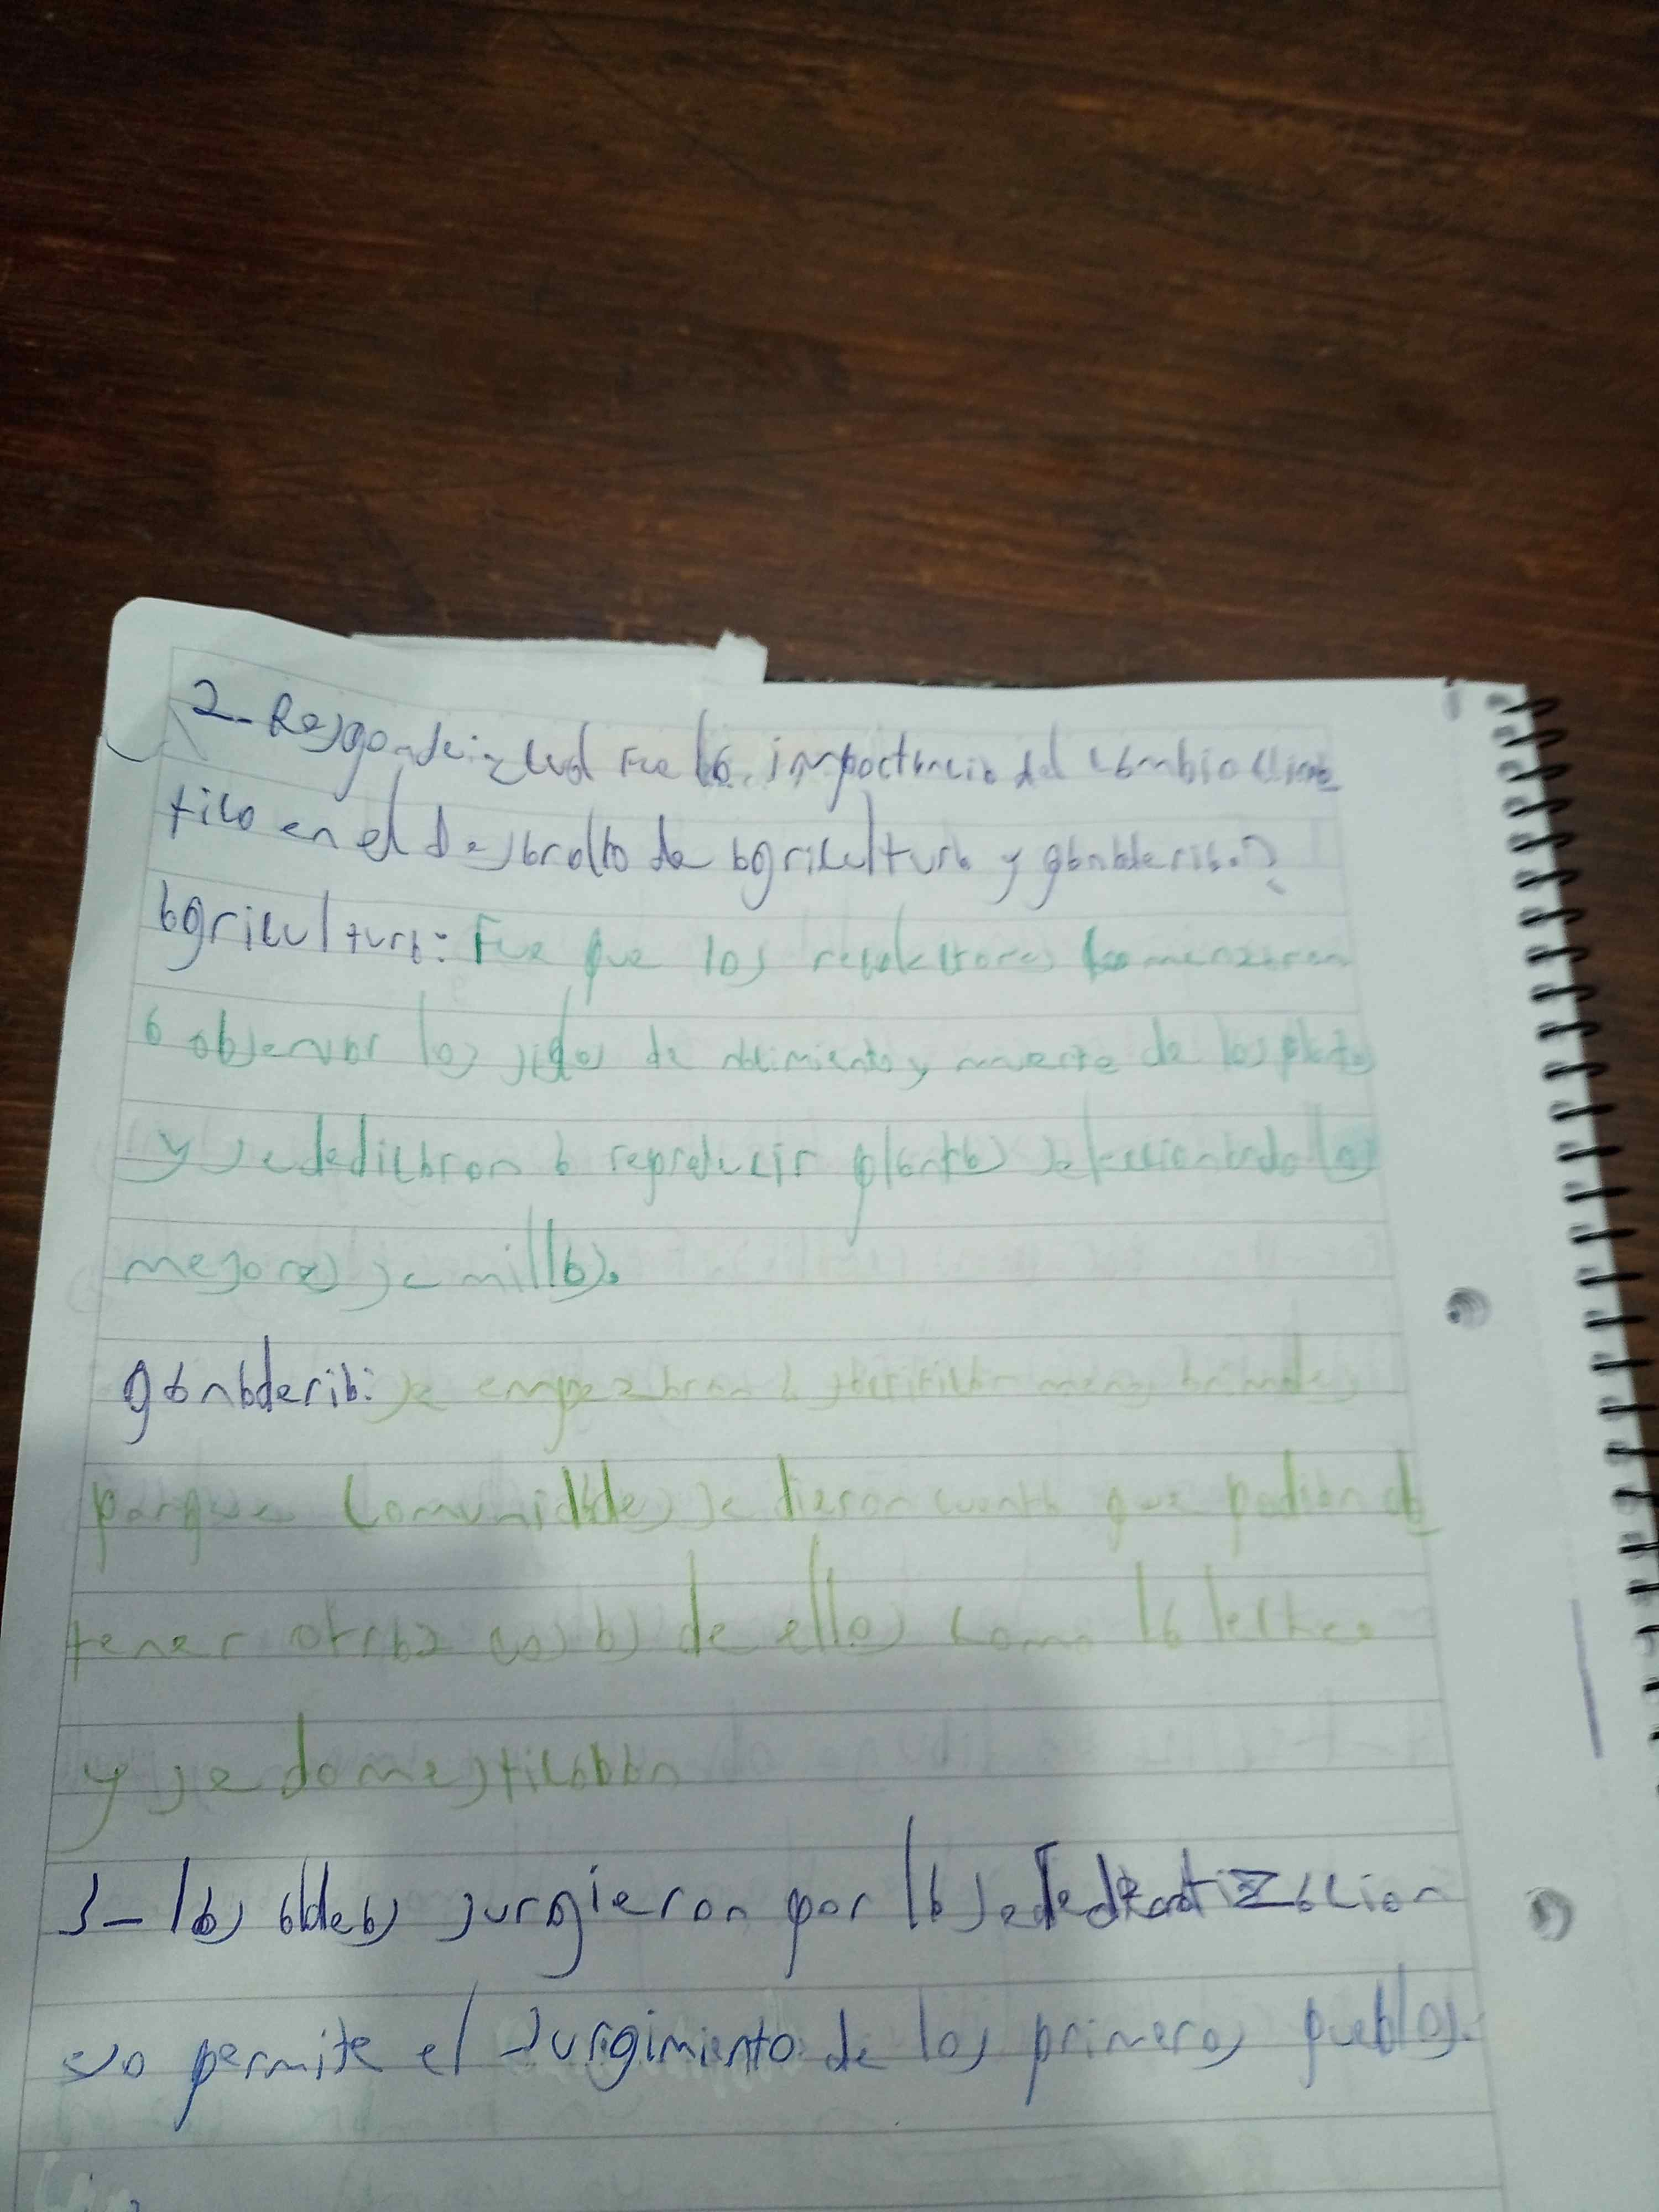 2- Responde: ¿cual fue la importancia del cambio clima
tico en el desarollo de agricultura y ganaderia?
agricultura: Fue que los recolectores comenzaron
a observar los siclos de nacimiento y muerte de las plantas
y se dedicaron a reproducir plantas seleccionando las
mejores semillas.
ganaderia: se empezaron a sacrificar menos animales
porque comunidades se dieron cuenta que podian ob
tener otras cosas de ellos como la leche
y se domesticaban
3- las aldeas surgieron por la
eso permite el surgimiento de los primeros pueblos.